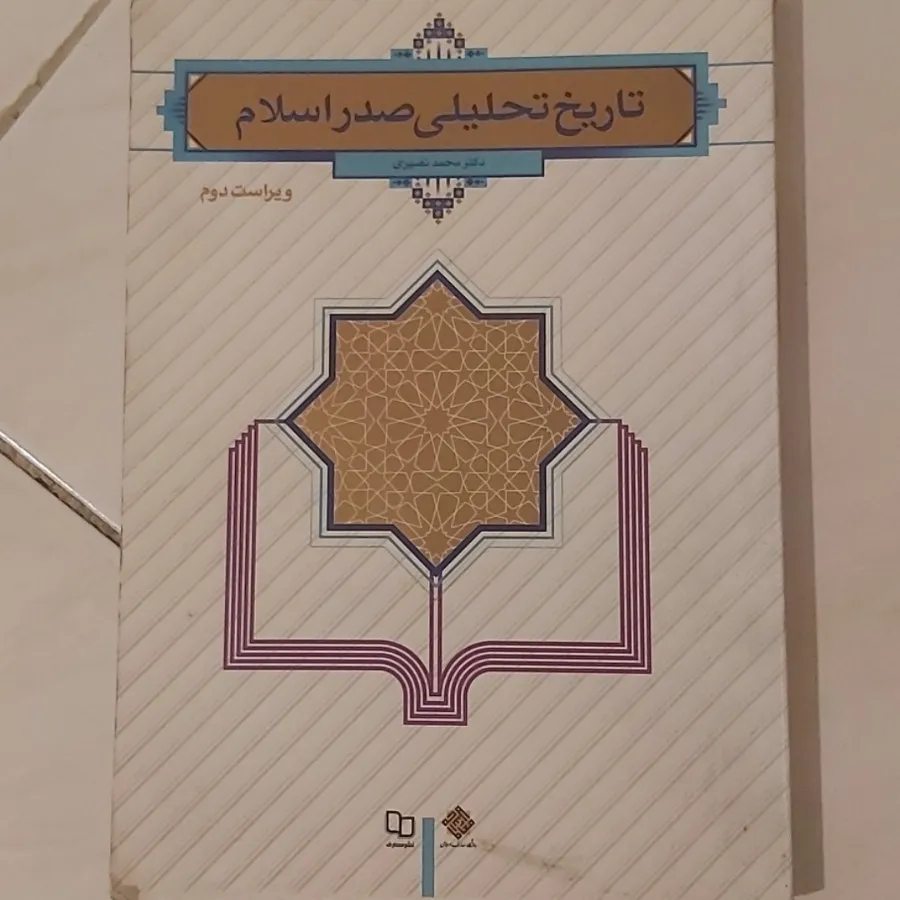 تاریخ تحلیلی صدر اسلام
دکتر محمد نصیری
ویراست دوم